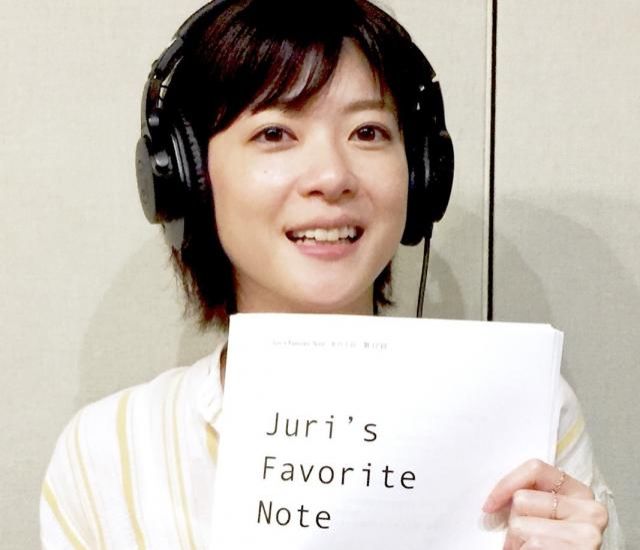 第12回
Juri's
Favorite
Note